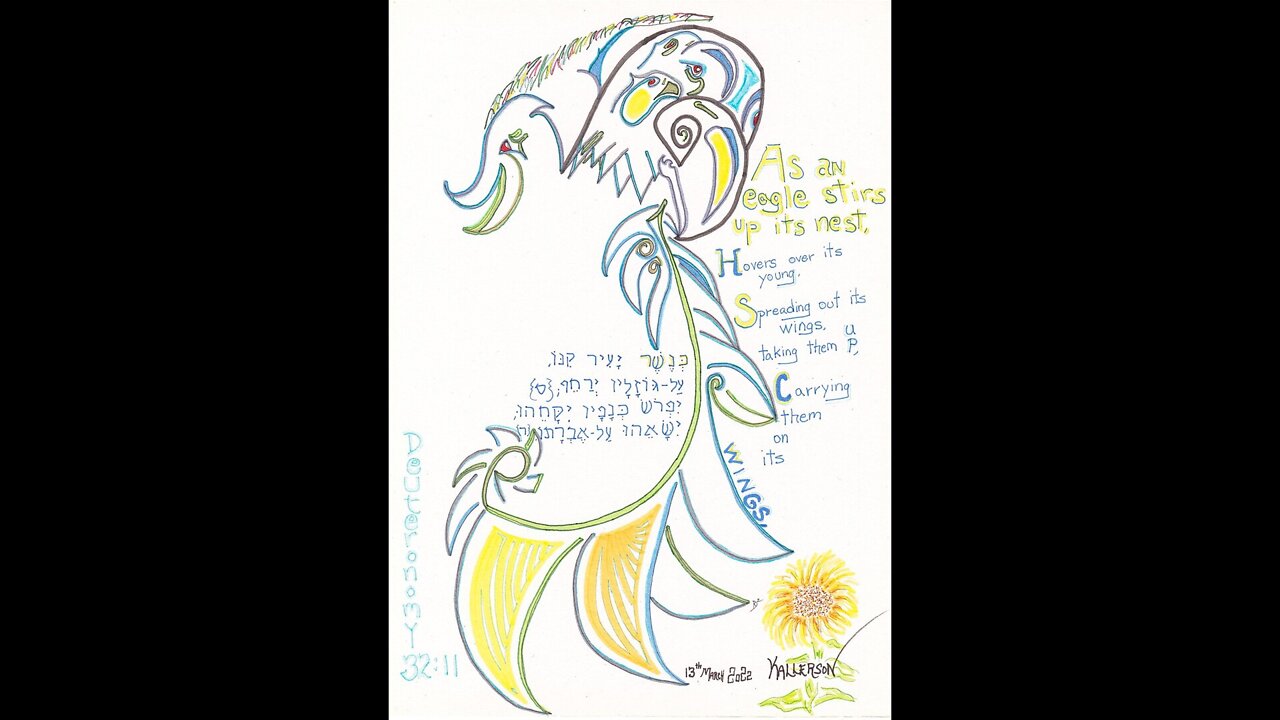 As an
eagle stirs
up its nest,
Hovers over its
young,
Spreading out its
wings,
taking them up,
Carrying
them
on
its
WINGS,
כְּנֶשֶׁר יָעִיר קִנּוֹ,
עַל-גּוֹזָלָיו יְרַחֵף,
יִפְרֹשׂ כְּנָפָיו יִקָּחֵהוּ,
יִשָּׂאֵהוּ עַל-אֶבְרָתוֹ
Deuteronomy
32:11
13th MARCH 2022
KALLERSON